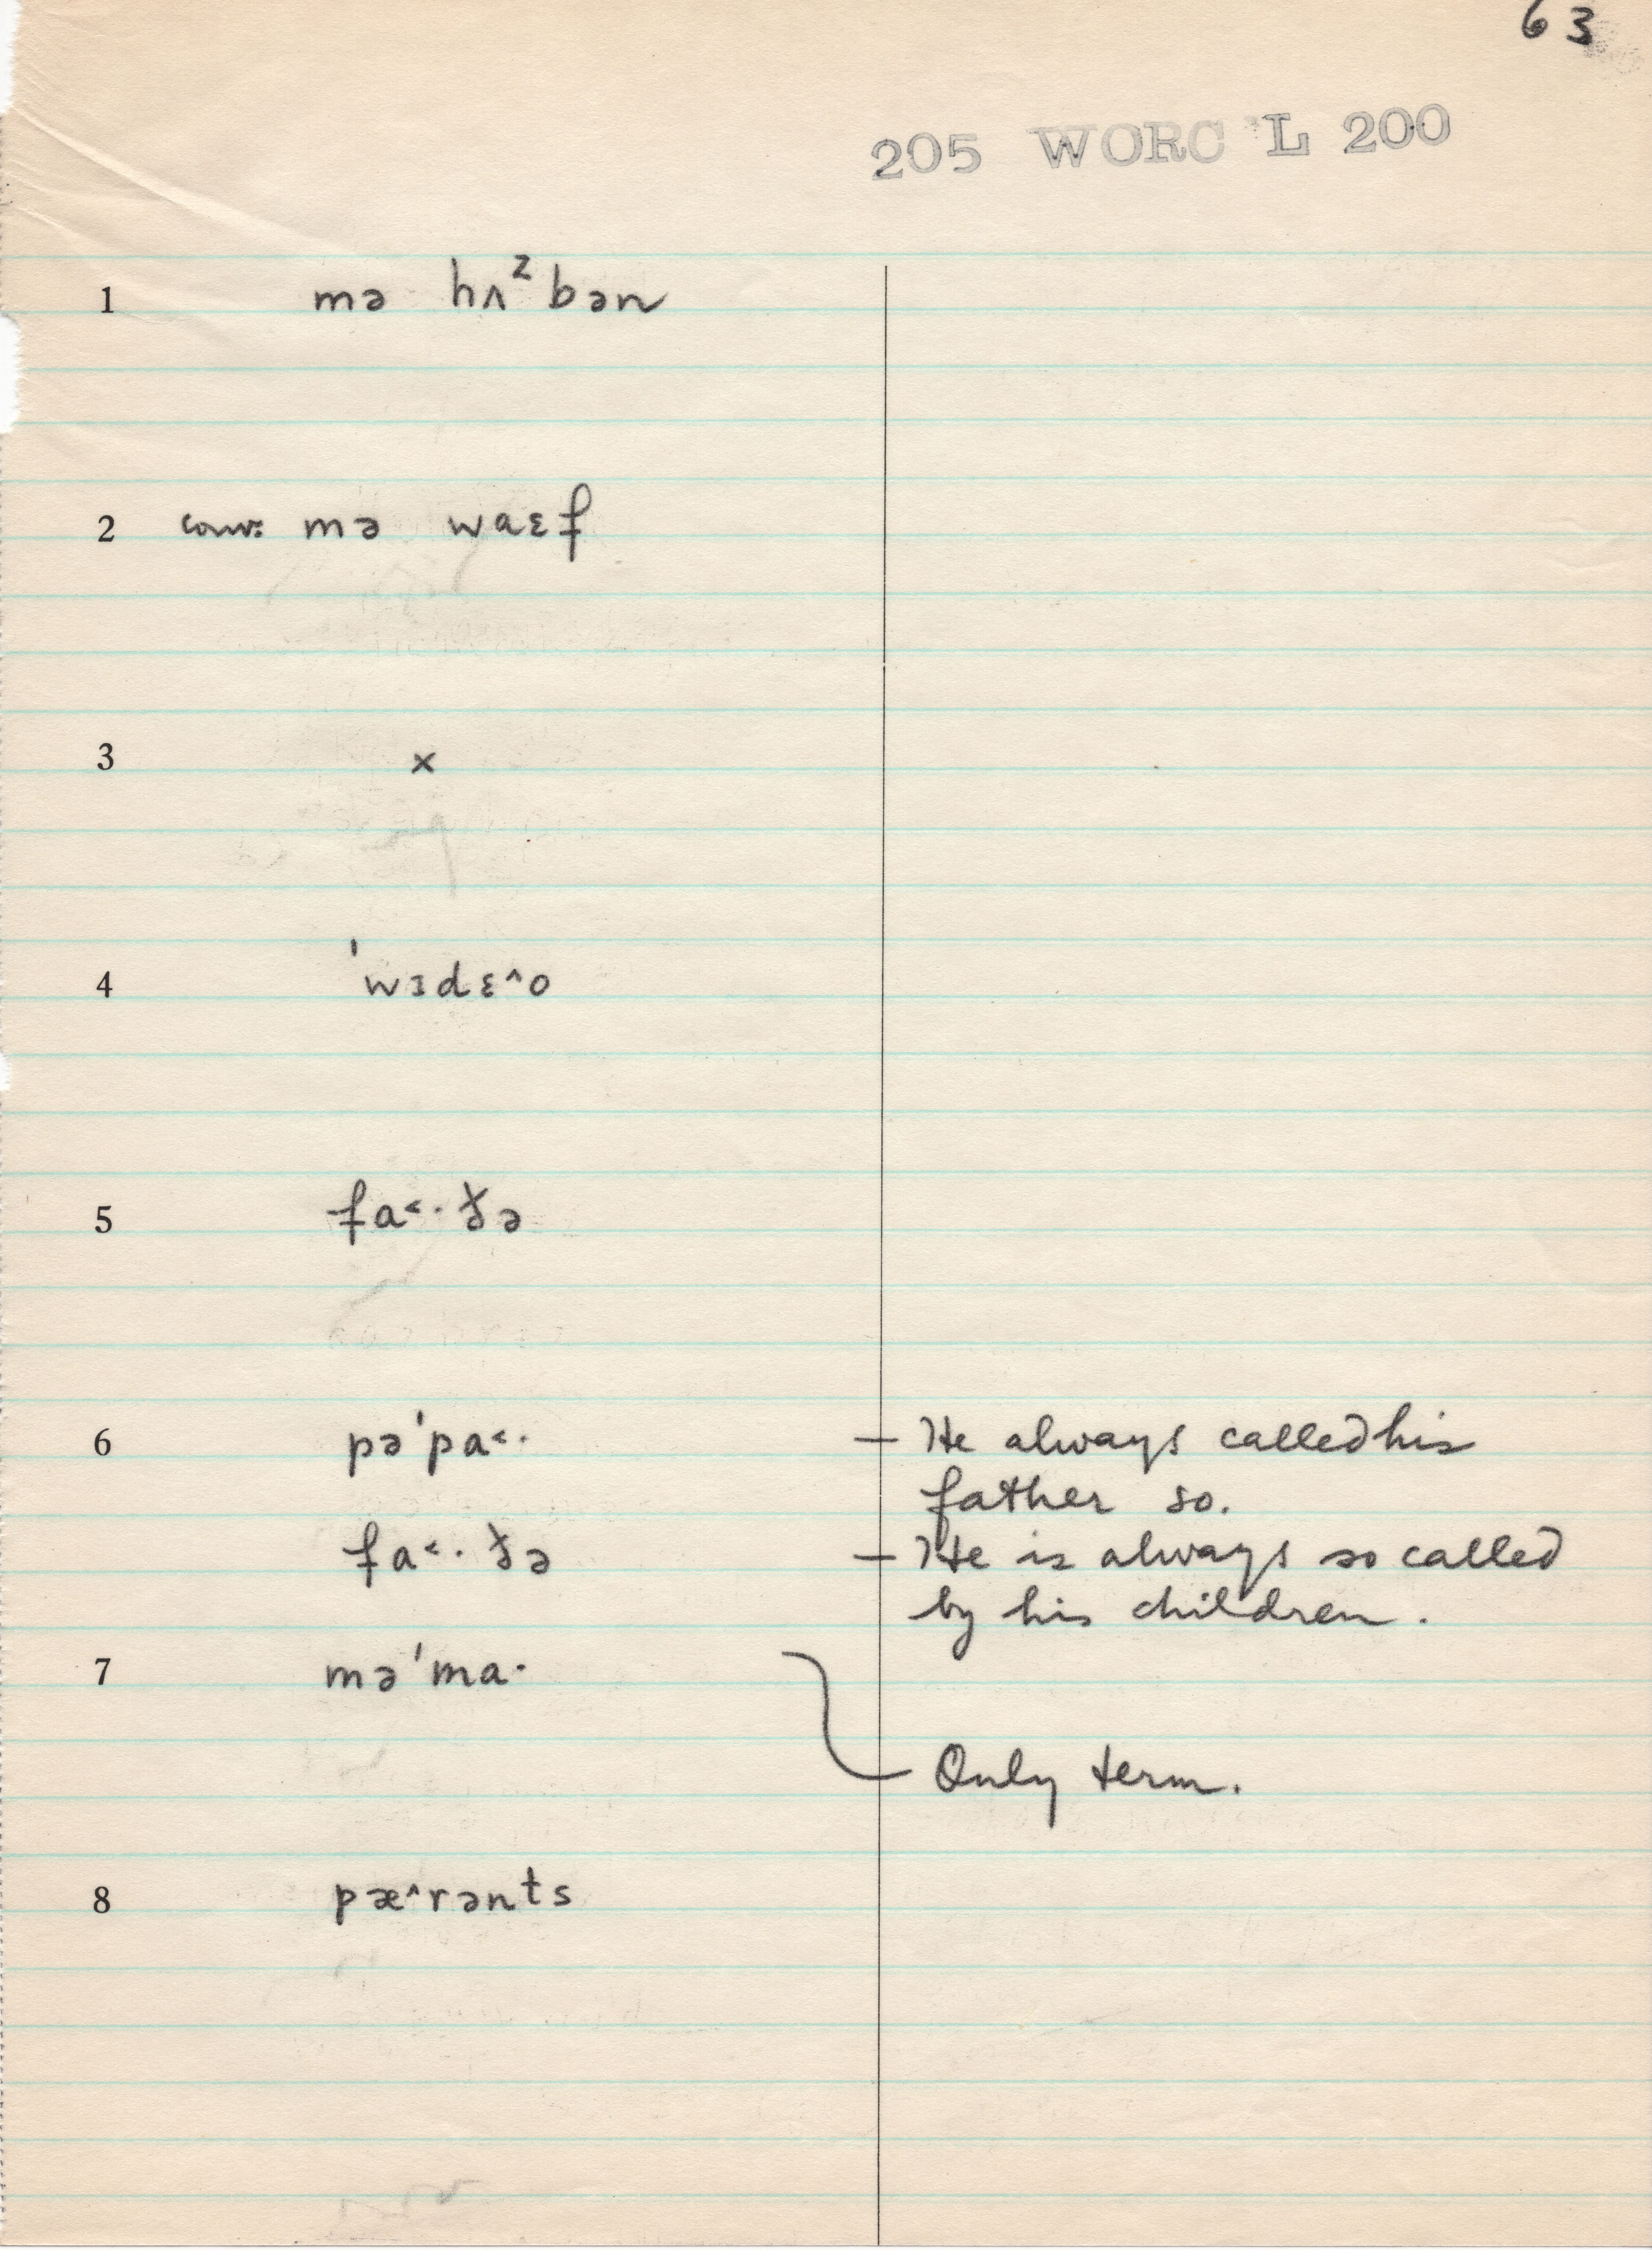 63
205 WORC 'L 200
1 mə hʌᶻbən
2 conv: mə waɛf
3 x
4 ˈwɪdɛ^o
5 fa˂·ðə
6 pəˈpa˂· — He always called his
father so.
fa˂·ðə — He is always so called
by his children.
7 məˈma·
Only term.
8 pæ^rənts